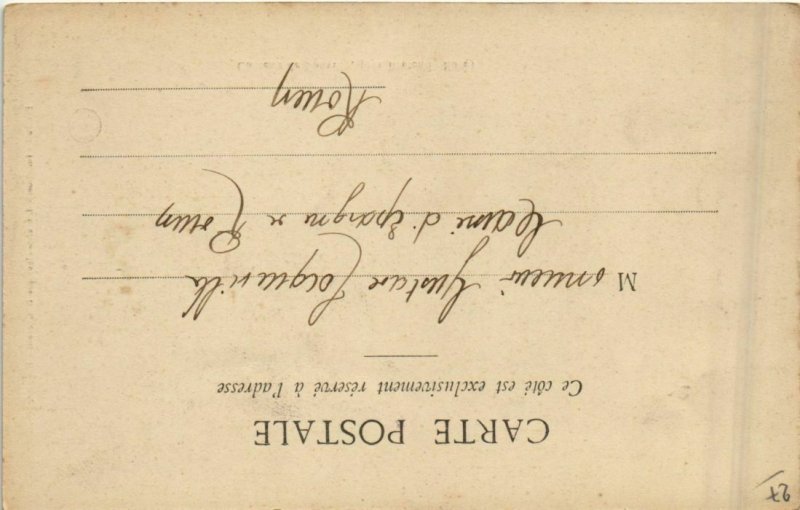 27
CARTE POSTALE
Ce côté est exclusivement réservé à l'adresse
Monsieur Gustave
Caisse d'Épargne de Rouen
Rouen